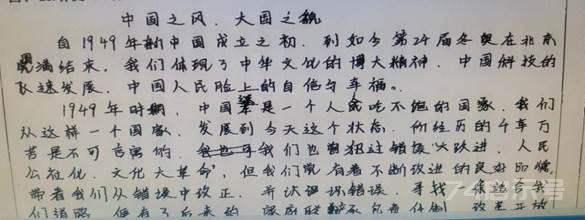 中国之风，大国之貌
自1949年新中国成立之初，到如今第24届冬奥在北京
圆满结束，我们体现了中华文化的博大精神，中国科技的
飞速发展，中国人民脸上的自信与幸福。
1949年时期，中国是一个人都吃不饱的国家，我们
从这样一个国家，发展到今天这个状态，所经历的千辛万
苦是不可言喻的，我们也曾犯过错误"大跃进、人民
公社化、文化大革命"，但我们党有着不断改进的良好
带着我们从错误中改正，并认识错误，寻找适合我
们道路，便有了后来的家庭联产承包责任制，改革开放
74学号